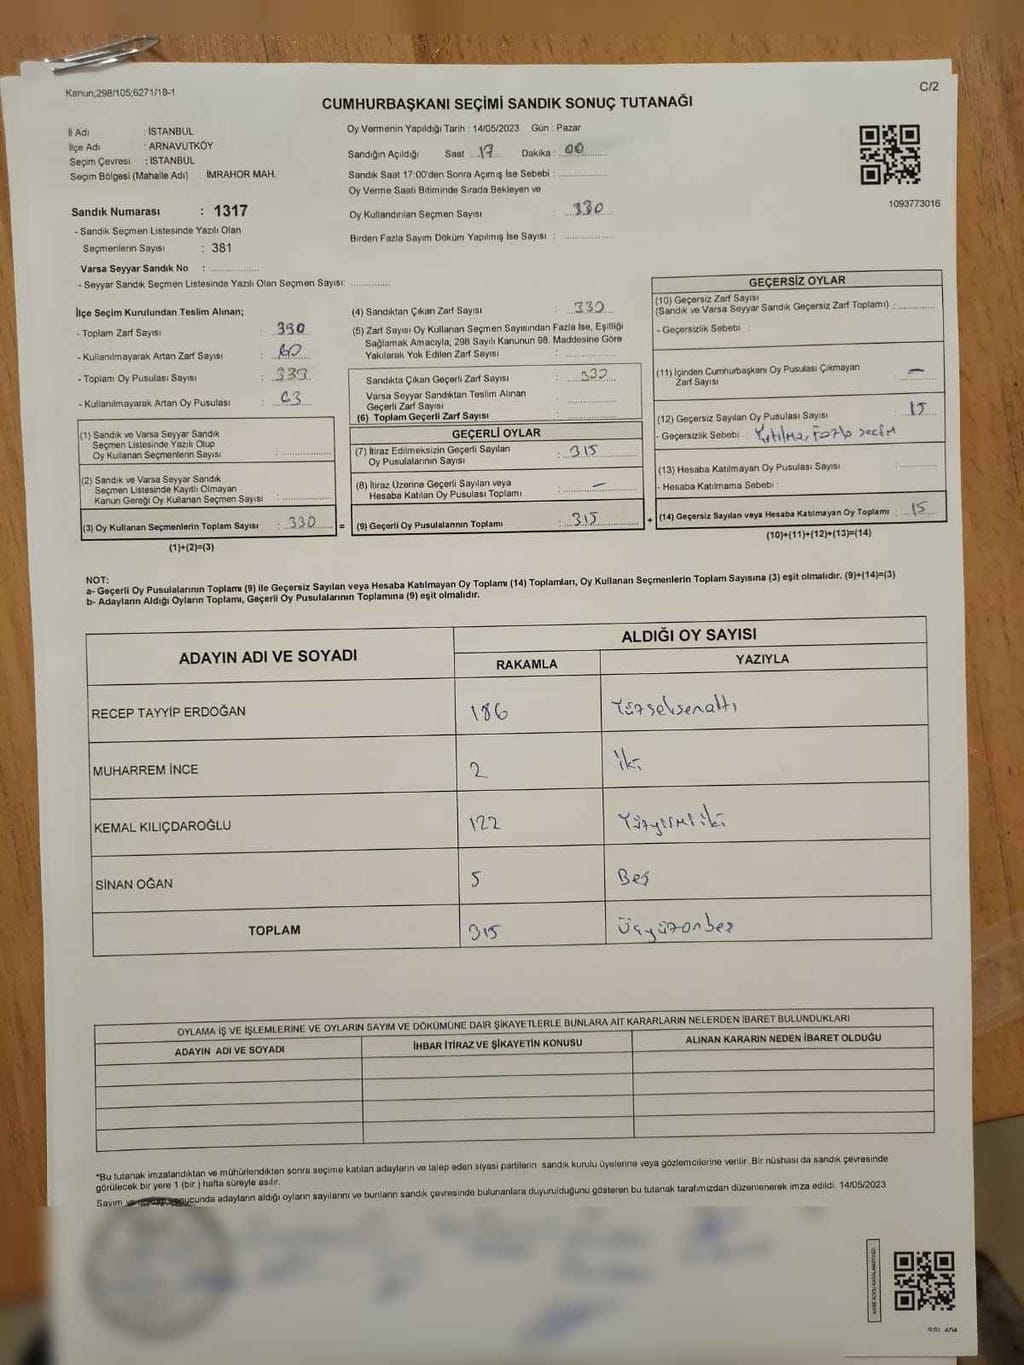 Kanun;298/105;6271/18-1
C/2
CUMHURBAŞKANI SEÇİMİ SANDIK SONUÇ TUTANAĞI
İl Adı : İSTANBUL
İlçe Adı : ARNAVUTKÖY
Seçim Çevresi : İSTANBUL
Seçim Bölgesi (Mahalle Adı) : İMRAHOR MAH.
Sandık Numarası : 1317
- Sandık Seçmen Listesinde Yazılı Olan
Seçmenlerin Sayısı : 381
Varsa Seyyar Sandık No :
- Seyyar Sandık Seçmen Listesinde Yazılı Olan Seçmen Sayısı:
Oy Vermenin Yapıldığı Tarih : 14/05/2023 Gün : Pazar
Sandığın Açıldığı Saat : 17 Dakika : 00
Sandık Saat 17:00'den Sonra Açımış İse Sebebi :
Oy Verme Saati Bitiminde Sırada Bekleyen ve
Oy Kullandırılan Seçmen Sayısı : 330
Birden Fazla Sayım Döküm Yapılmış İse Sayısı :
1093773016
İlçe Seçim Kurulundan Teslim Alınan;
- Toplam Zarf Sayısı : 390
- Kullanılmayarak Artan Zarf Sayısı : 60
- Toplam Oy Pusulası Sayısı : 393
- Kullanılmayarak Artan Oy Pusulası : 63
(1) Sandık ve Varsa Seyyar Sandık
Seçmen Listesinde Yazılı Olup
Oy Kullanan Seçmenlerin Sayısı :
(2) Sandık ve Varsa Seyyar Sandık
Seçmen Listesinde Kayıtlı Olmayan
Kanun Gereği Oy Kullanan Seçmen Sayısı :
(3) Oy Kullanan Seçmenlerin Toplam Sayısı : 330
(1)+(2)=(3)
=
(4) Sandıktan Çıkan Zarf Sayısı : 330
(5) Zarf Sayısı Oy Kullanan Seçmen Sayısından Fazla İse, Eşitliği
Sağlamak Amacıyla, 298 Sayılı Kanunun 98. Maddesine Göre
Yakılarak Yok Edilen Zarf Sayısı :
Sandıkta Çıkan Geçerli Zarf Sayısı : 330
Varsa Seyyar Sandıktan Teslim Alınan
Geçerli Zarf Sayısı :
(6) Toplam Geçerli Zarf Sayısı :
GEÇERLİ OYLAR
(7) İtiraz Edilmeksizin Geçerli Sayılan
Oy Pusulalarının Sayısı : 315
(8) İtiraz Üzerine Geçerli Sayılan veya
Hesaba Katılan Oy Pusulası Toplamı : -
(9) Geçerli Oy Pusulalarının Toplamı : 315
+
GEÇERSİZ OYLAR
(10) Geçersiz Zarf Sayısı
(Sandık ve Varsa Seyyar Sandık Geçersiz Zarf Toplamı) :
- Geçersizlik Sebebi :
(11) İçinden Cumhurbaşkanı Oy Pusulası Çıkmayan
Zarf Sayısı : -
(12) Geçersiz Sayılan Oy Pusulası Sayısı : 15
- Geçersizlik Sebebi : Yırtılma, Fazla seçim
(13) Hesaba Katılmayan Oy Pusulası Sayısı :
- Hesaba Katılmama Sebebi :
(14) Geçersiz Sayılan veya Hesaba Katılmayan Oy Toplamı : 15
(10)+(11)+(12)+(13)=(14)
NOT:
a- Geçerli Oy Pusulalarının Toplamı (9) ile Geçersiz Sayılan veya Hesaba Katılmayan Oy Toplamı (14) Toplamları, Oy Kullanan Seçmenlerin Toplam Sayısına (3) eşit olmalıdır. (9)+(14)=(3)
b- Adayların Aldığı Oyların Toplamı, Geçerli Oy Pusulalarının Toplamına (9) eşit olmalıdır.
ADAYIN ADI VE SOYADI
ALDIĞI OY SAYISI
RAKAMLA YAZIYLA
RECEP TAYYİP ERDOĞAN 186 Yüzseksenaltı
MUHARREM İNCE 2 İki
KEMAL KILIÇDAROĞLU 122 Yüzyirmiiki
SİNAN OĞAN 5 Beş
TOPLAM 315 Üçyüzonbeş
OYLAMA İŞ VE İŞLEMLERİNE VE OYLARIN SAYIM VE DÖKÜMÜNE DAİR ŞİKAYETLERLE BUNLARA AİT KARARLARIN NELERDEN İBARET BULUNDUKLARI
ADAYIN ADI VE SOYADI İHBAR İTİRAZ VE ŞİKAYETİN KONUSU ALINAN KARARIN NEDEN İBARET OLDUĞU
*Bu tutanak imzalandıktan ve mühürlendikten sonra seçime katılan adayların ve talep eden siyasi partilerin sandık kurulu üyelerine veya gözlemcilerine verilir .Bir nüshası da sandık çevresinde
görülecek bir yere 1 (bir ) hafta süreyle asılır.
Sayım ve sonucunda adayların aldığı oyların sayılarını ve bunların sandık çevresinde bulunanlara duyurulduğunu gösteren bu tutanak tarafımızdan düzenlenerek imza edildi. 14/05/2023